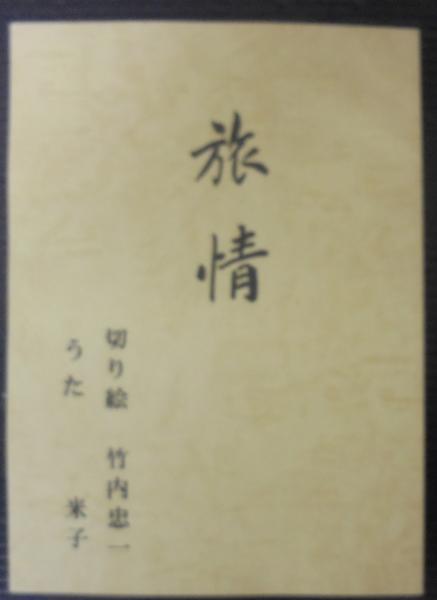 旅情
切り絵 竹内忠一
うた 米子